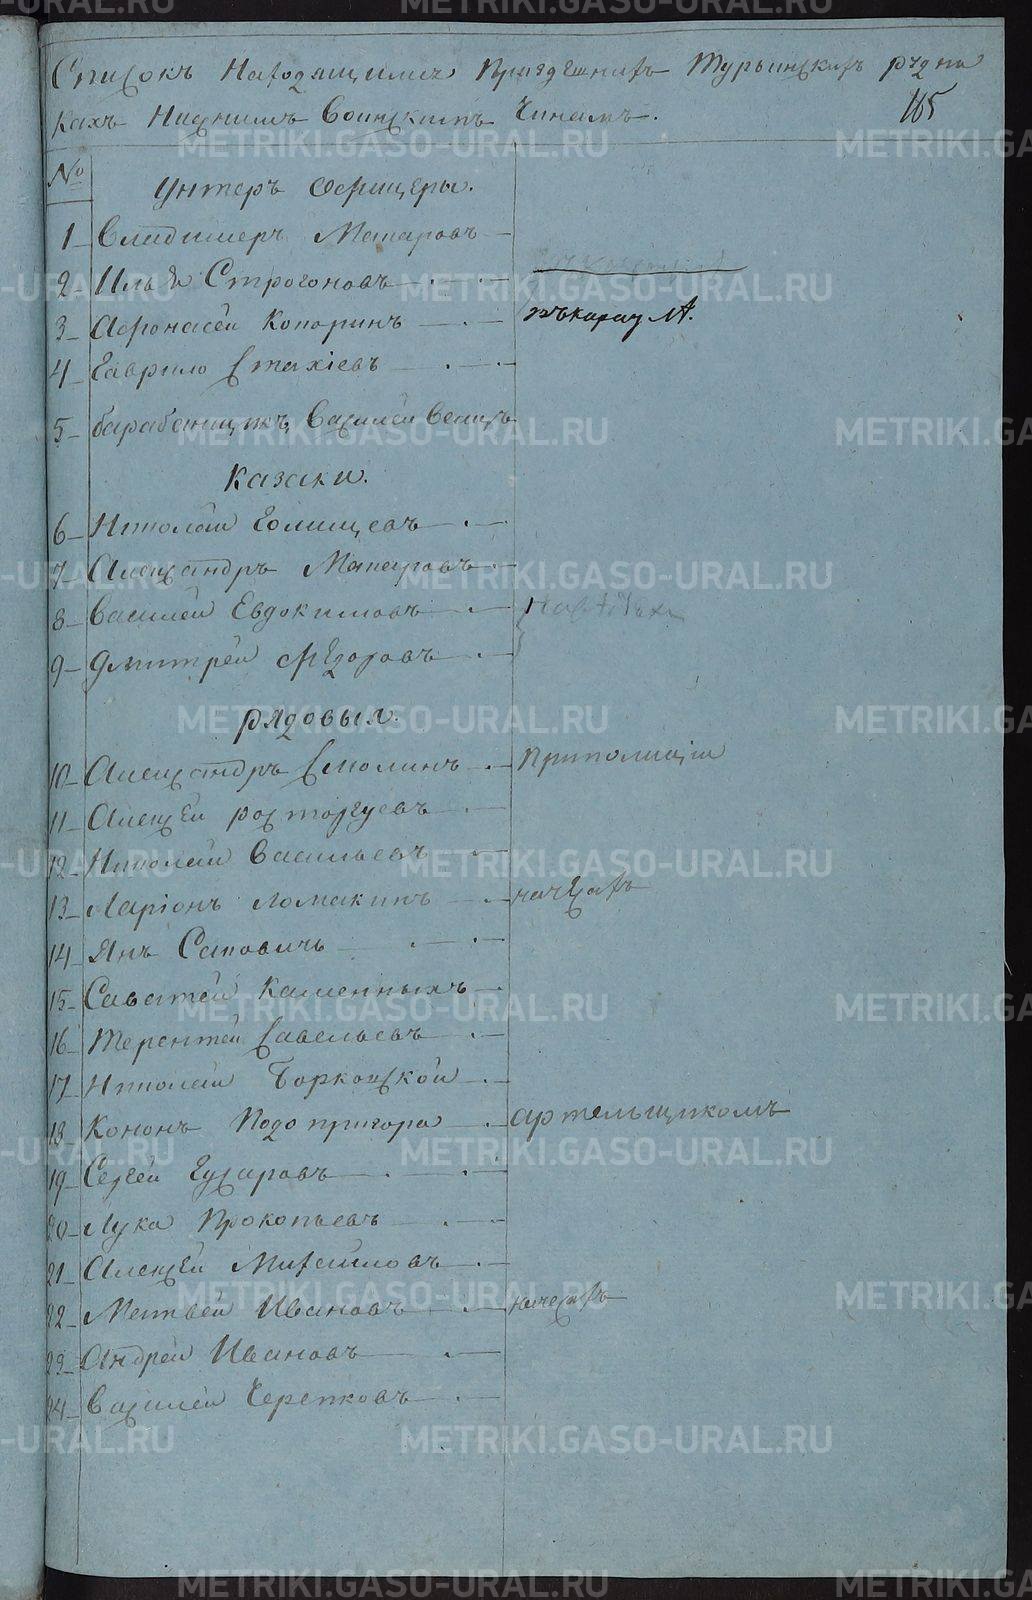 Списокъ Находящимся Приздешнихъ Турьинскихъ рудни
кахъ Нижнимъ Воинскимъ Чинамъ.
165
№
Унтеръ Офицеры.
1 Владимеръ Макаровъ
2 Илья Строгоновъ
3 Афонасей Копоринъ въ караулѣ.
4 Гаврило Стахіевъ
5 барабанщикъ Василей
Казаки.
6 Николай Голищевъ
7 Александръ Макаровъ
8 Василей Евдокимовъ
9 Дмитрей Федоровъ
рядовыя.
10 Александръ Смолинъ Приполиціи
11 Алексей расторгуевъ
12 Николай Васильевъ
13 Ларіонъ Ломакинъ начасахъ
14 Янъ Саковичь
15 Саватей Каменныхъ
16 Терентей Савельевъ
17 Николай Борковской
18 Кононъ Подопригора артельщикомъ
19 Сергей Гусаровъ
20 Лука Прокопьевъ
21 Алексей Михайловъ
22 Матвей Ивановъ начасахъ
23 Андрей Ивановъ
24 Василей Черепковъ
METRIKI.GASO-URAL.RU